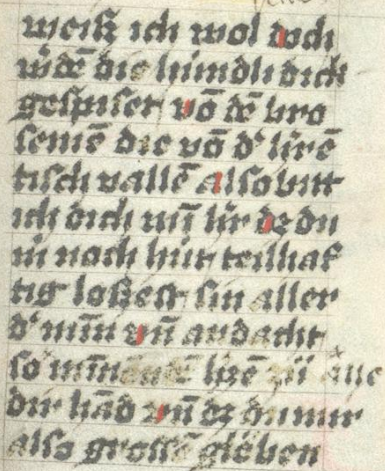 weiß ich wol doch
w'dē die hündli dick
gespiset vō dē bro
semē die vō d' h're
tisch vallē also bitt
ich dich mī h'r dz du
m nach hüt teilhaf
tig loßest sin aller
d' minn vn̄ andacht
so
dir hād vn̄ dz du mir
also grossē glöben